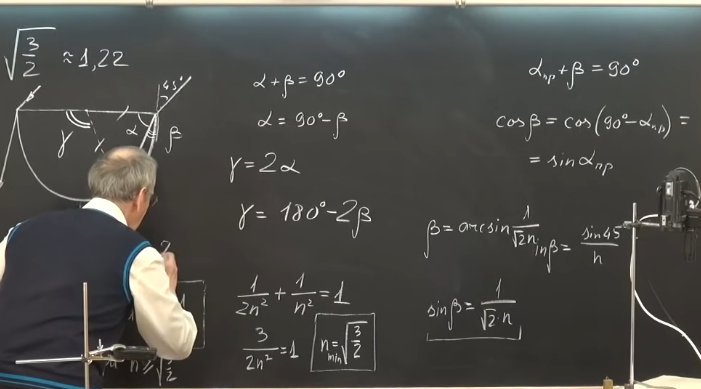 √3/2 ≈ 1,22
45°
γ
α
β
α + β = 90°
α = 90° - β
γ = 2α
γ = 180° - 2β
1/2n² + 1/n² = 1
3/2n² = 1
n min = √3/2
α пр + β = 90°
cos β = cos(90° - α пр) =
= sin α пр
β = arcsin 1/√2 n
sin β = sin 45/n
sin β = 1/√2 · n
n ≥ √3/2